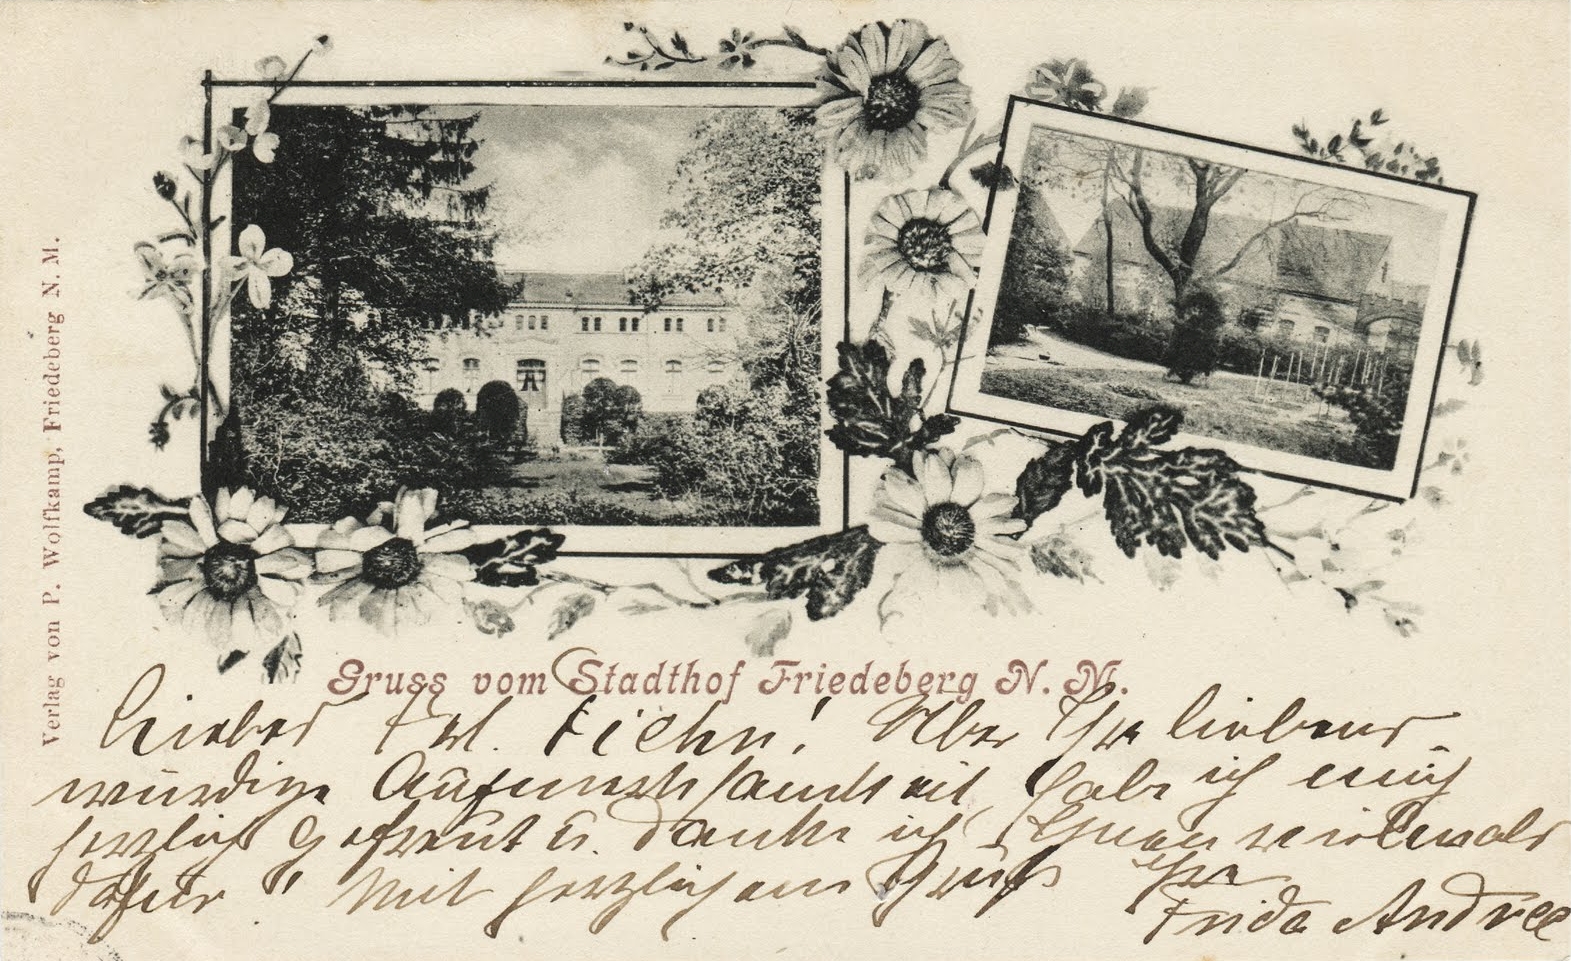 Verlag von P. Wolfkamp, Friedeberg N. M.
Gruss vom Stadthof Friedeberg N. M.
Liebes Frl. Fiehn! Über Ihre liebens-
würdige Aufmerksamkeit habe ich mich
herzlich gefreut u. danke ich Ihnen vielmals
dafür! Mit herzlichem Gruß Ihre
Frida Andrée